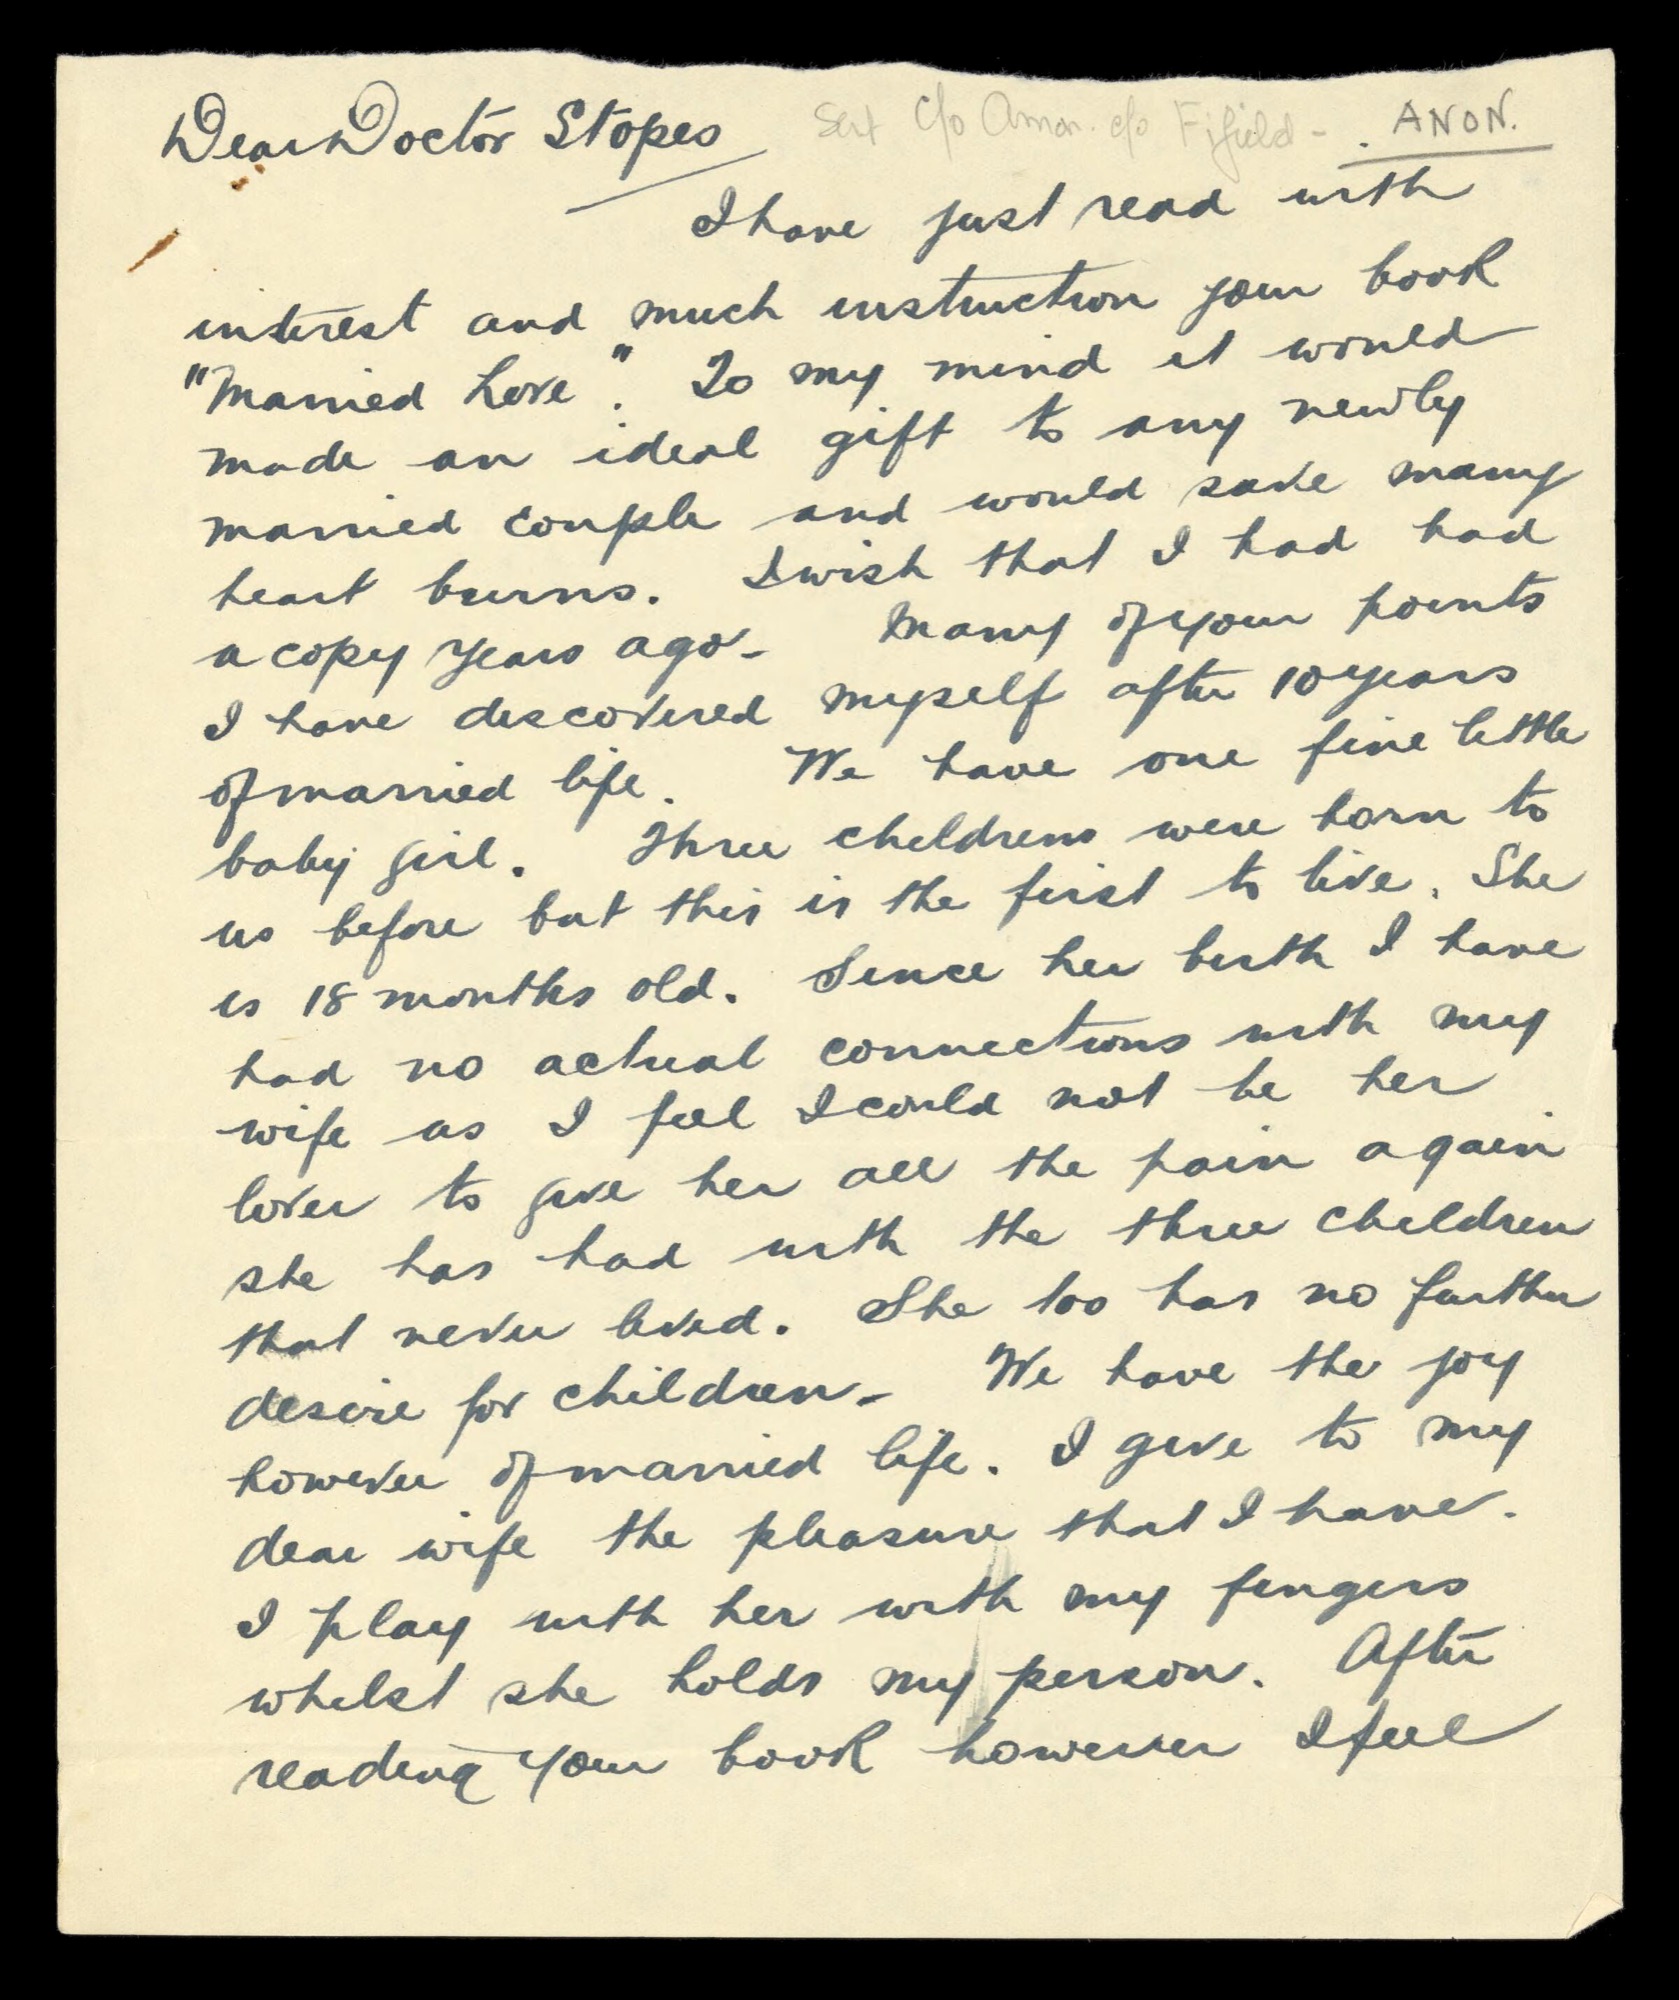 Dear Doctor Stopes
c/o Anon. c/o Fifield - ANON.
I have just read with
interest and much instruction your book
"Married Love". To my mind it would
made an ideal gift to any newly
married couple and would save many
heart burns. I wish that I had had
a copy years ago - Many of your points
I have discovered myself after 10 years
of married life. We have one fine little
baby girl. Three childrens were born to
us before but this is the first to live. She
is 18 months old. Since her birth I have
had no actual connections with my
wife as I feel I could not be her
lover to give her all the pain again
she has had with the three children
that never lived. She too has no further
desire for children - We have the joy
however of married life. I give to my
dear wife the pleasure that I have.
I play with her with my fingers
whilst she holds my person. After
reading your book however I feel